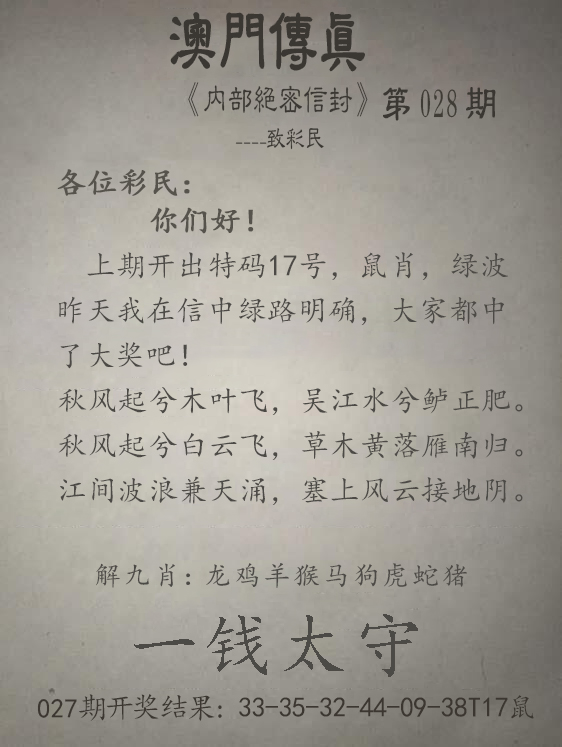 澳門傳眞
《内部絕密信封》第028期
----致彩民
各位彩民：
你们好！
上期开出特码17号，鼠肖，绿波
昨天我在信中绿路明确，大家都中
了大奖吧！
秋风起兮木叶飞，吴江水兮鲈正肥。
秋风起兮白云飞，草木黄落雁南归。
江间波浪兼天涌，塞上风云接地阴。
解九肖：龙鸡羊猴马狗虎蛇猪
一钱太守
027期开奖结果：33-35-32-44-09-38T17鼠